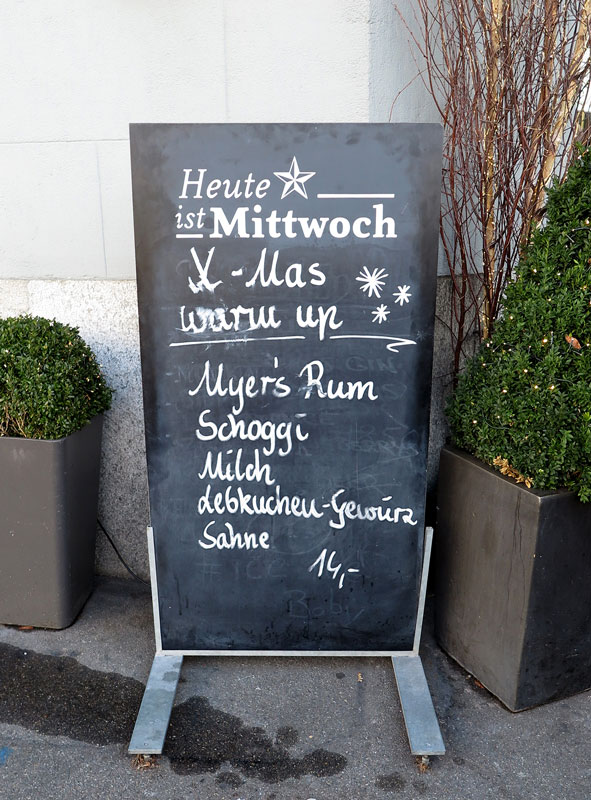 Heute
ist Mittwoch
X-Mas
warm up
Myer's Rum
Schoggi
Milch
Lebkuchen-Gewürz
Sahne
14,-